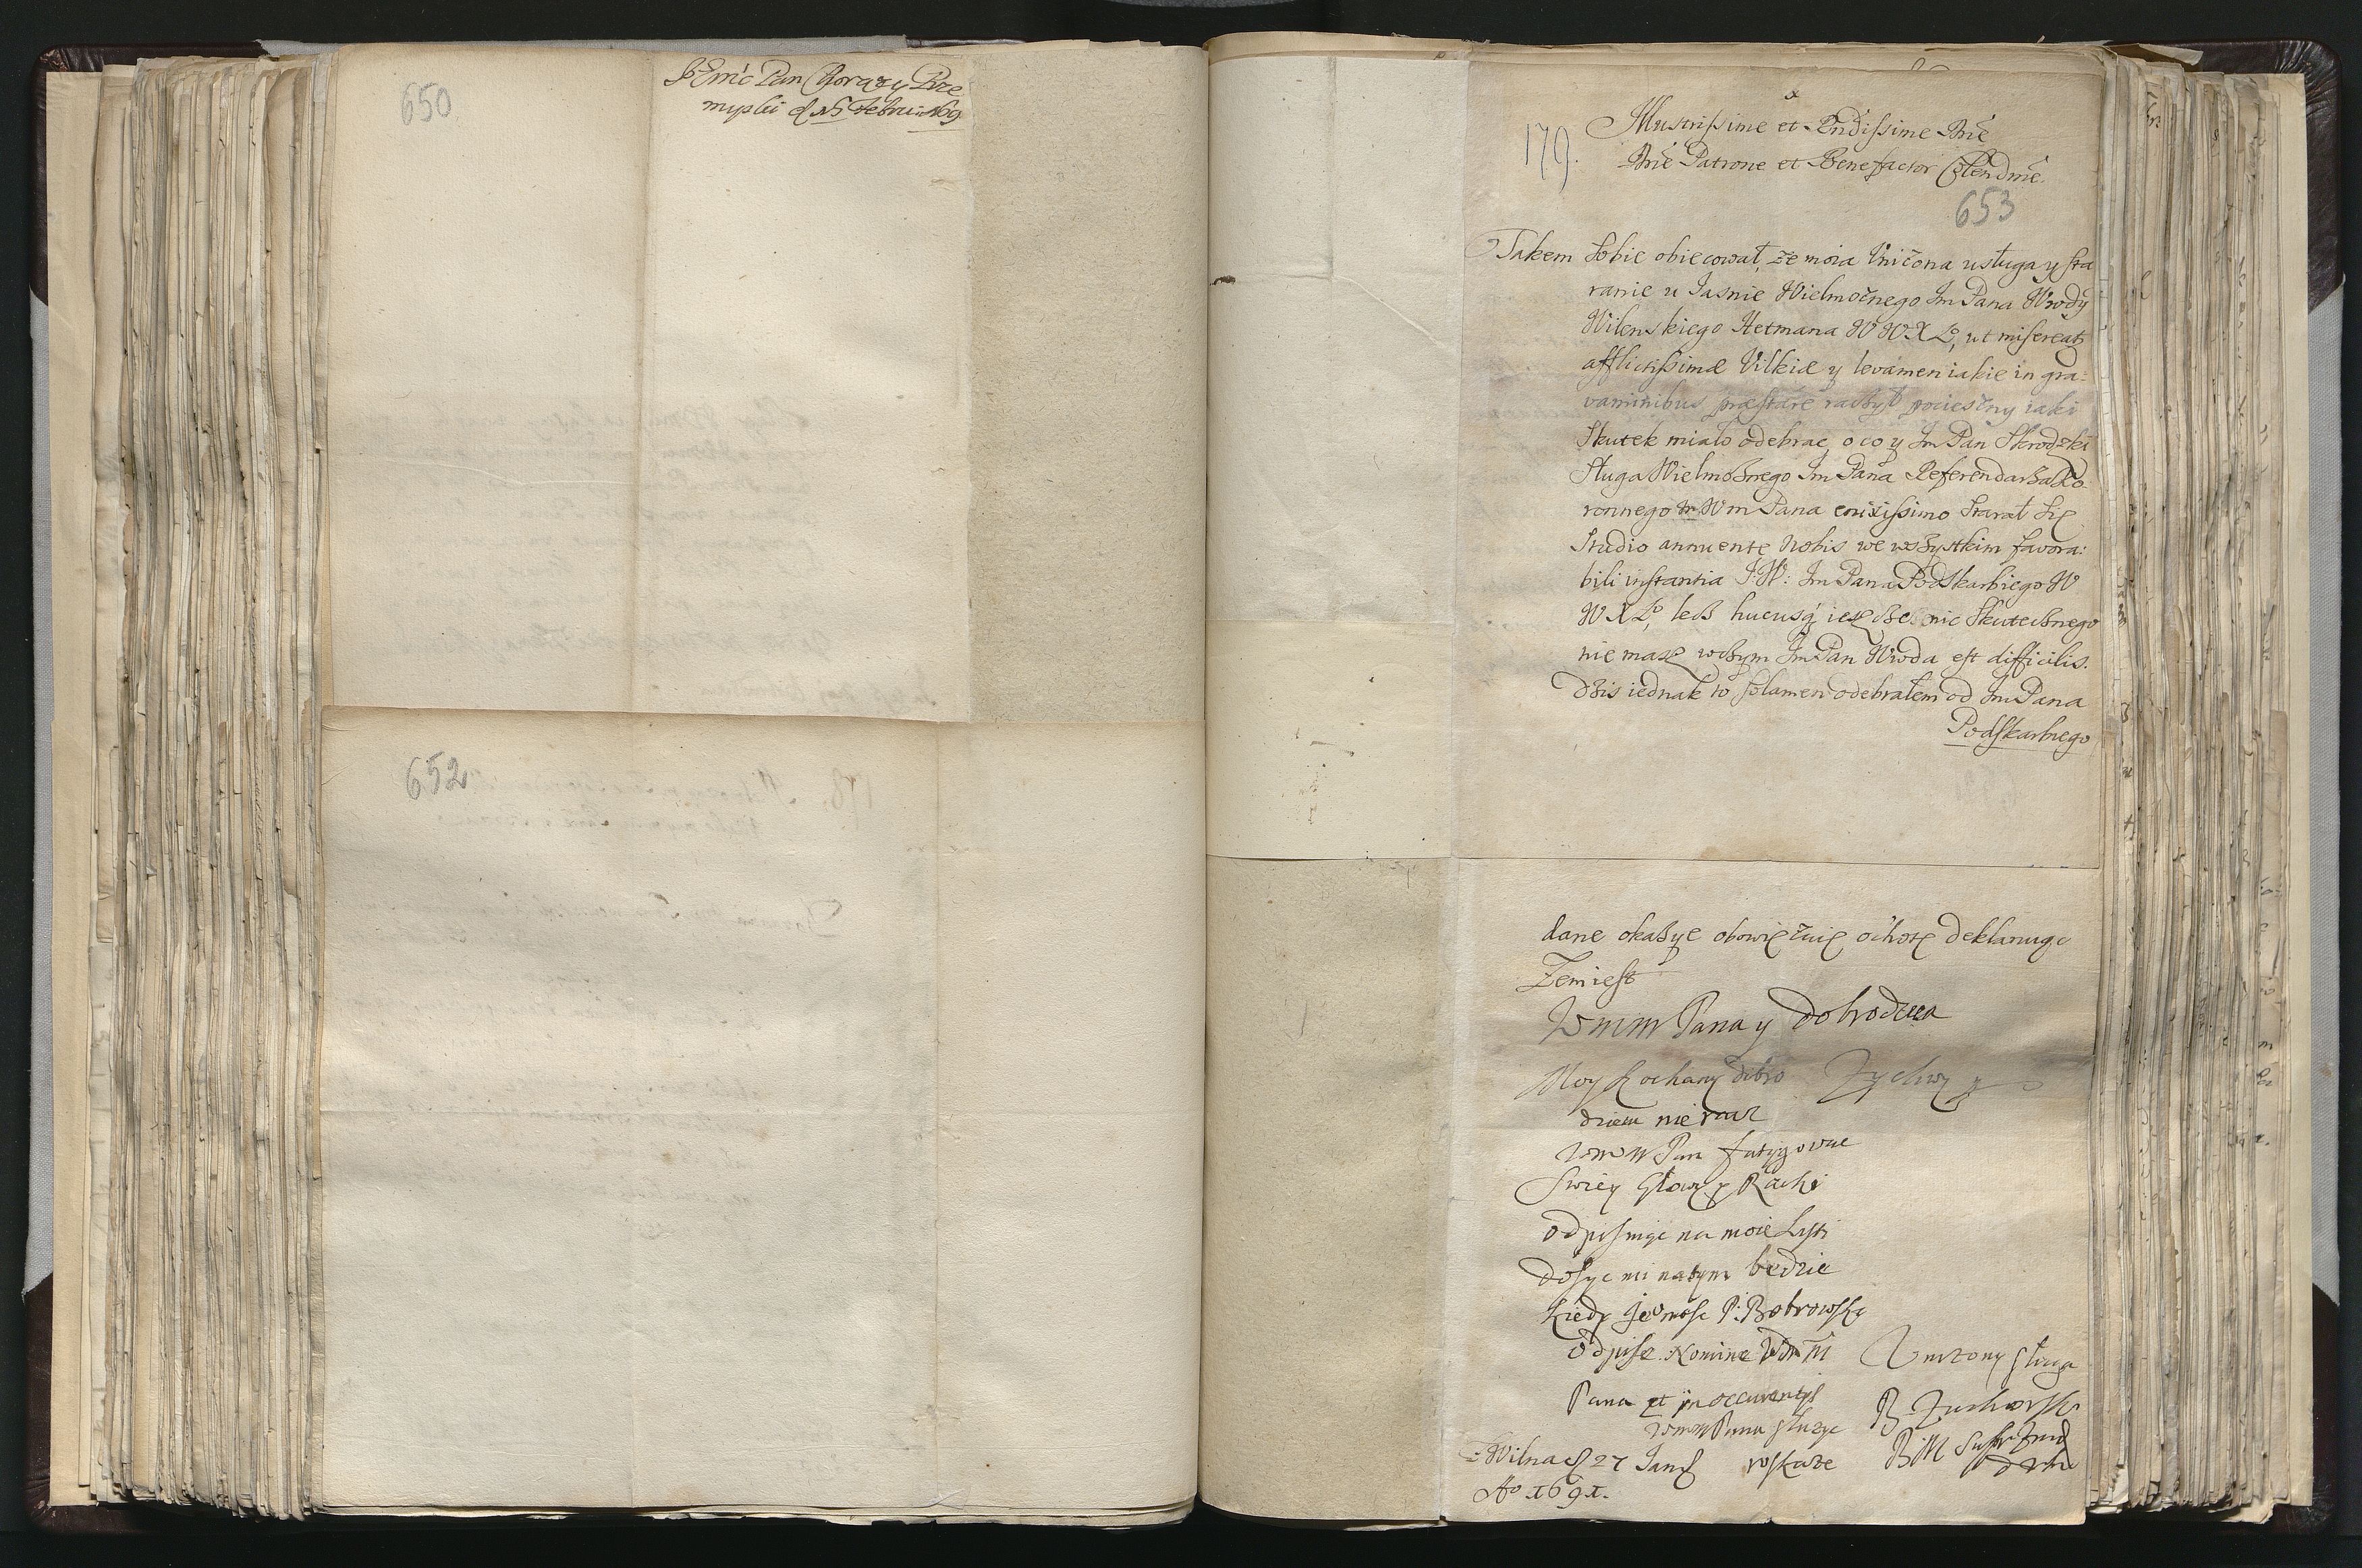 650
JEmć Pan Chorąży Prze
myslki d 15 Februarii 169
652
179.
Illustrissime et Rndissime Dne
Dne Patrone et Benefactor Colendme.
653
Takem sobie obiecował, że moia Uniżona usługa y sta
ranie u Jasnie Wielmożnego Jm Pana Wwody
Wilenskiego Hetmana W W.X.L, ut misereat
afflictissimæ Vilkiæ y levamen iakie in gra:
vaminibus præstare raczył pocieszny iaki
Skutek miało odebrac, o co y Jm Pan Skrodzki
Sługa Wielmożnego Jm Pana Referendarza Ko
ronnego Wm Pana enixissimo starał się
Studio annuente Nobis we wszystkim favora:
bili instantia J:W: Jm Pana Podskarbiego W
W X L, lecz hucusq ieszcze nic Skutecznego
nie masz w czym Jm Pan Wwoda est difficilis.
Dzis iednak to solamen odebrałem od Jm Pana
Podskarbiego
dane okazye obowięzuię ochotę deklaruge
Zemiest
Wmm Pana y Dobrodzieia
Moy kochany dobro Zyczliwy
dzieiu nie racz
Wmm Pan fatygowac
Swiey Głowy y Rączki
odpisuige na moie Listi
dosyc mi natym bedzie
kiedy Jeomosc P: Bobrowsky
odpise Nomine Wmm
Unizony sługa
Pana et in occurentys
Wmm Pana słuzyc
z Wilna d 27 Jan
roskaze
Ao 1691.